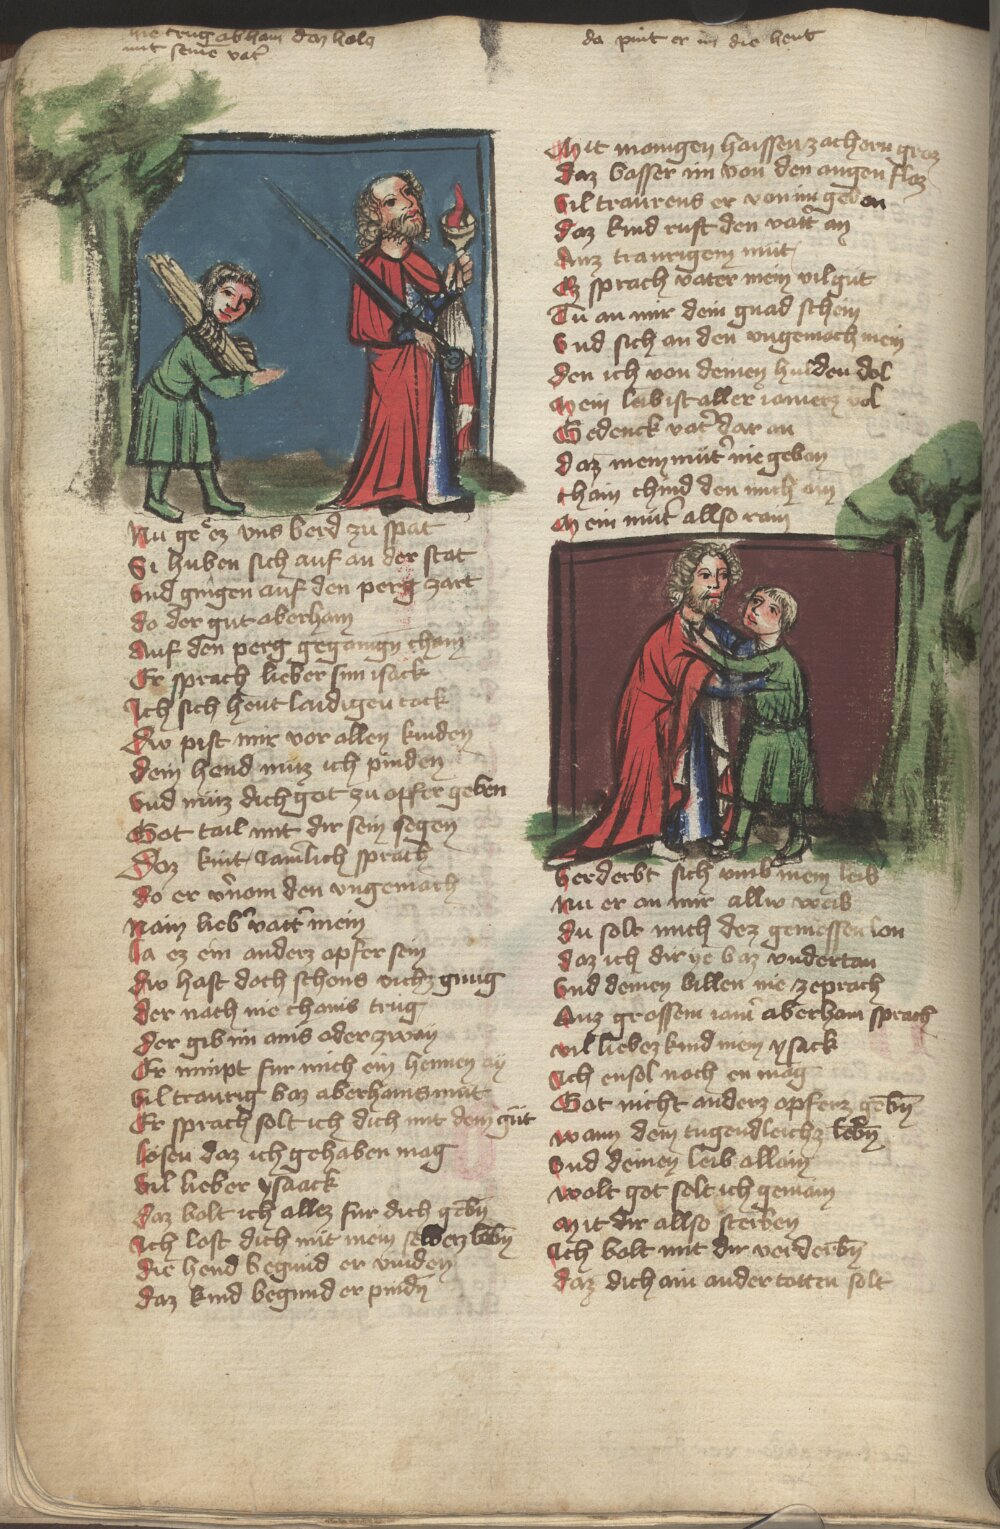 hie trug abham daz holcz
mit seinē vatʾ
Nu ge ez vns berd zu spat
Si huben sich auf an der stat
Vnd gingen auf den perg zart
do der gut aberham
Auf den perg gegangn cham
Er sprach lieber sun isack
Ich sich heut laidigen tack
Dw pist mir vor allen kinden
dein hend muz ich pinden
Vnd muz dich got zu opfer geben
Got tail mit dir sein segen
Daz kint Jamlich sprach
do er vʾnom den vngemach
Nain liebʾ vattʾ mein
la ez ein anderz opfer sein
dw hast doch schons vichz gnug
der nach nie chains trug
der gib im ains oder zway
Er nimpt fur mich ein hennen ay
Vil traurig baz aberhams mut
Er sprach solt ich dich mit dem gut
losen daz ich gehaben mag
Vil lieber ysaack
daz bolt ich allez fur dich gebn̄
Ich lost dich mit mein selberz lebn̄
die hend begund er binden
daz kind begund er pindn̄
da pint er im die hent
Mit manigen haissen zachern groz
daz basser im von den augen floz
Vil traurens er von im geban
daz kind ruft den vattʾ an
Auz traurigem mut
Er sprach vater mein vil gut
Tu an mir dein gnad schein
Vnd sich an den vngemach mein
den ich von deinen hulden dol
Mein leib ist aller iamerz vol
Gedenck vatʾ dar an
daz mein mutʾ nie geban
chain chind den mich ain
Mein mutʾ allso rain
Verderbt sich vmb mein leib
Nu er an mir allw weib
du solt mich dez geniessen lon
daz ich dir ye baz vndertan
Vnd deinen billen nie zeprach
Auz grossem iamʾ aberham sprach
Vil liebez kind mein ysack
Ich ensol noch en mag
Got nicht anderz opferz gebn̄
wann dein tugendleichz lebn̄
Vnd deinen leib allain
wolt got solt ich gemain
Mit dir allso sterben
Ich bolt mit dir verderbn̄
daz dich ain ander totten solt